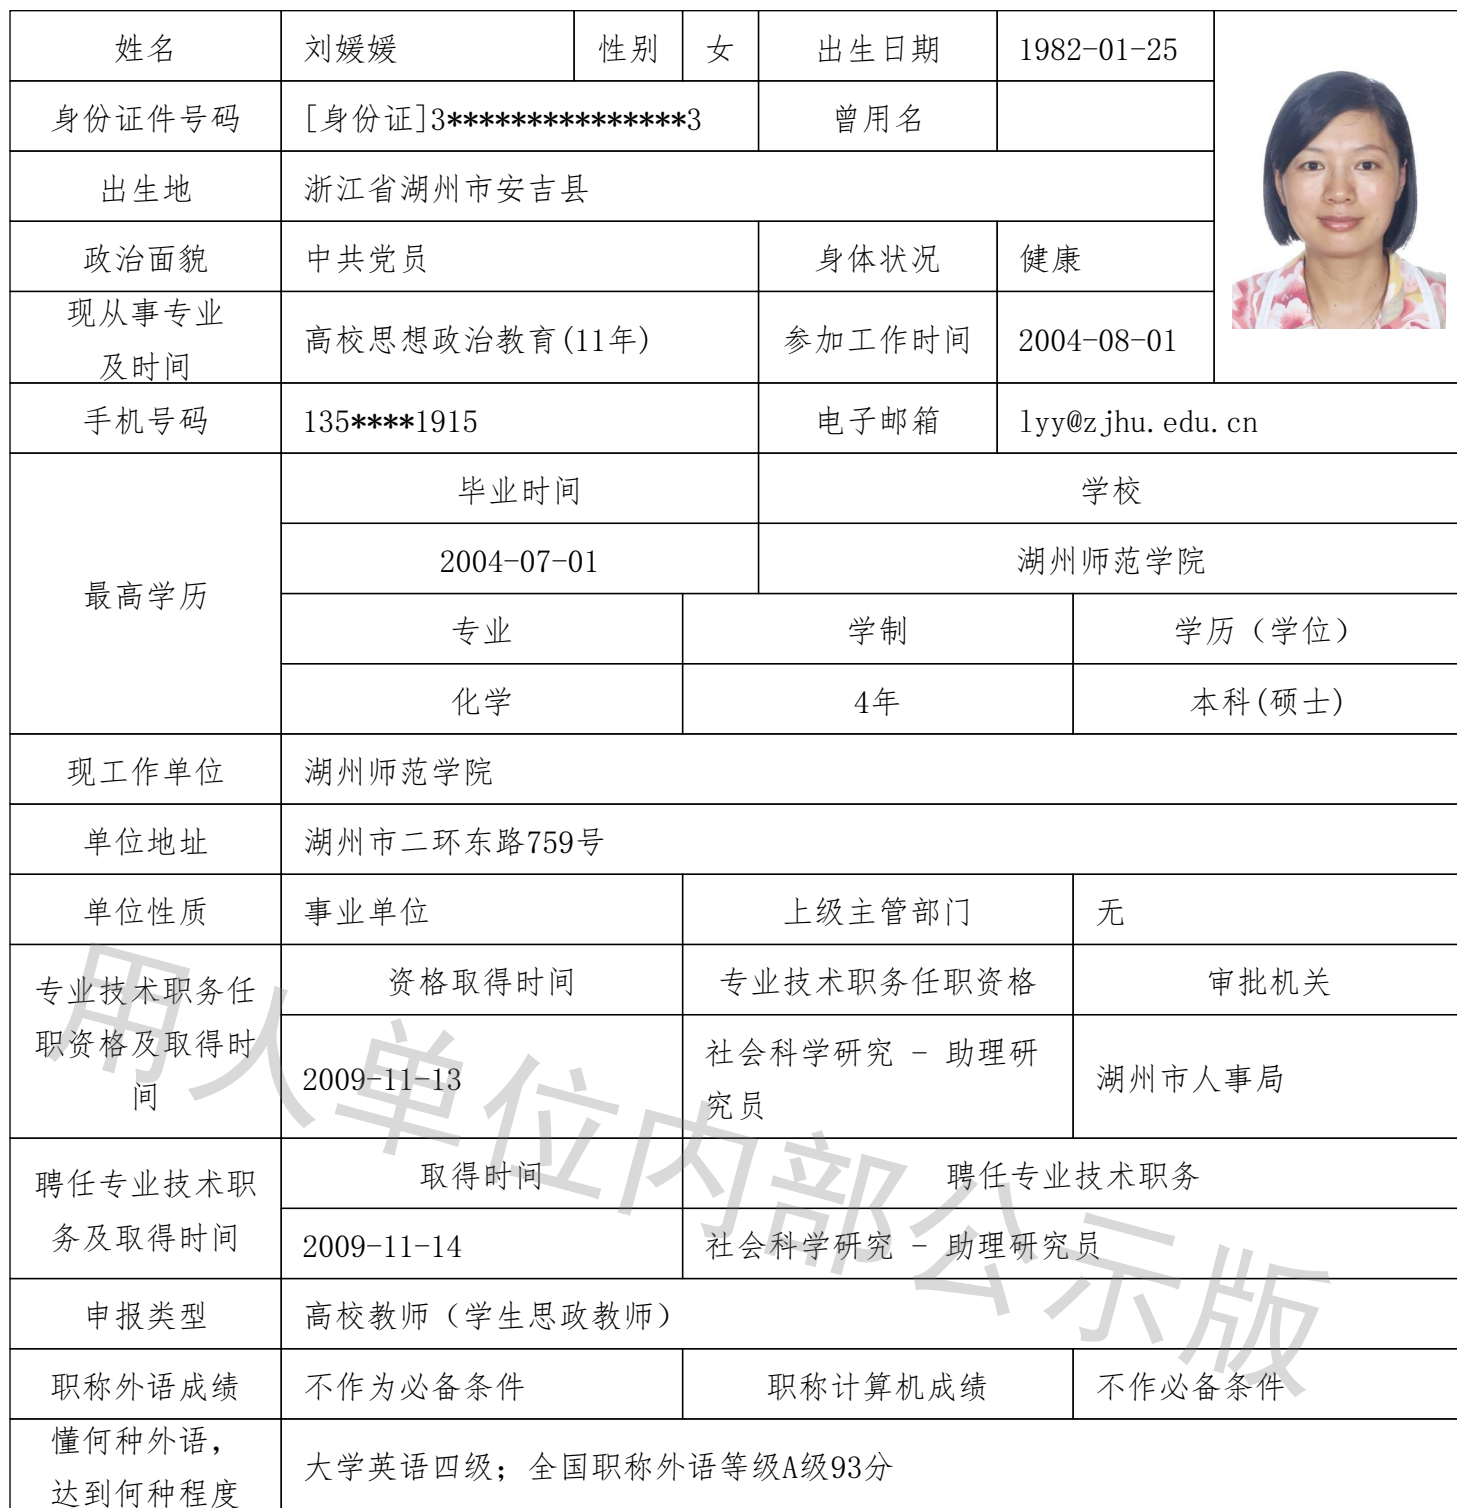 姓名 刘媛媛 性别 女 出生日期 1982-01-25
身份证件号码 [身份证]3***************3 曾用名
出生地 浙江省湖州市安吉县
政治面貌 中共党员 身体状况 健康
现从事专业
及时间
高校思想政治教育(11年) 参加工作时间 2004-08-01
手机号码 135****1915 电子邮箱 lyy@zjhu.edu.cn
最高学历
毕业时间 学校
2004-07-01 湖州师范学院
专业 学制 学历（学位）
化学 4年 本科(硕士)
现工作单位 湖州师范学院
单位地址 湖州市二环东路759号
单位性质 事业单位 上级主管部门 无
专业技术职务任
职资格及取得时
间
资格取得时间 专业技术职务任职资格 审批机关
2009-11-13
社会科学研究 - 助理研
究员
湖州市人事局
聘任专业技术职
务及取得时间
取得时间 聘任专业技术职务
2009-11-14 社会科学研究 - 助理研究员
申报类型 高校教师（学生思政教师）
职称外语成绩 不作为必备条件 职称计算机成绩 不作必备条件
懂何种外语，
达到何种程度
大学英语四级；全国职称外语等级A级93分
用人单位内部公示版